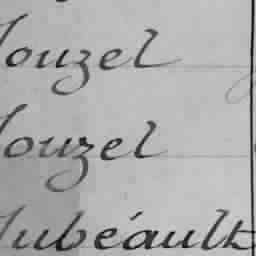 ouzel
ouzel
ubéault